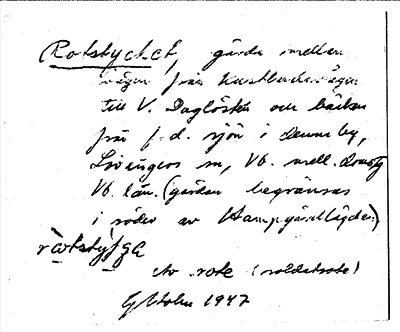 Rotstycket, gärde mellan
vägen från Kustlandsvägen
till V. Daglösten och bäcken
från f.d. sjön i denna by,
Lövångers sn, Vb.
Vb. län. (gärdan begränsas
i söder av Hampgärdtägden)
av rote (soldatrote)
1947